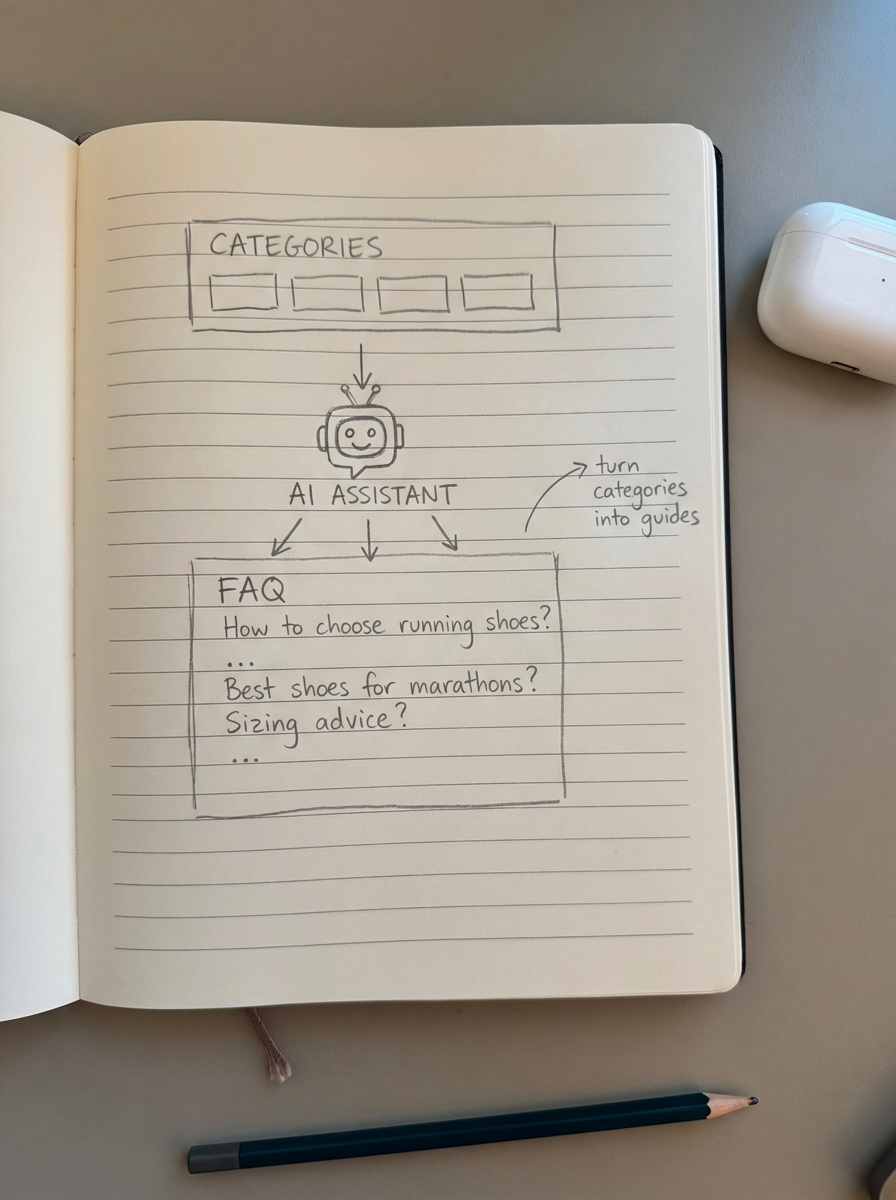 CATEGORIES
AI ASSISTANT
turn
categories
into guides
FAQ
How to choose running shoes?
...
Best shoes for marathons?
Sizing advice?
...